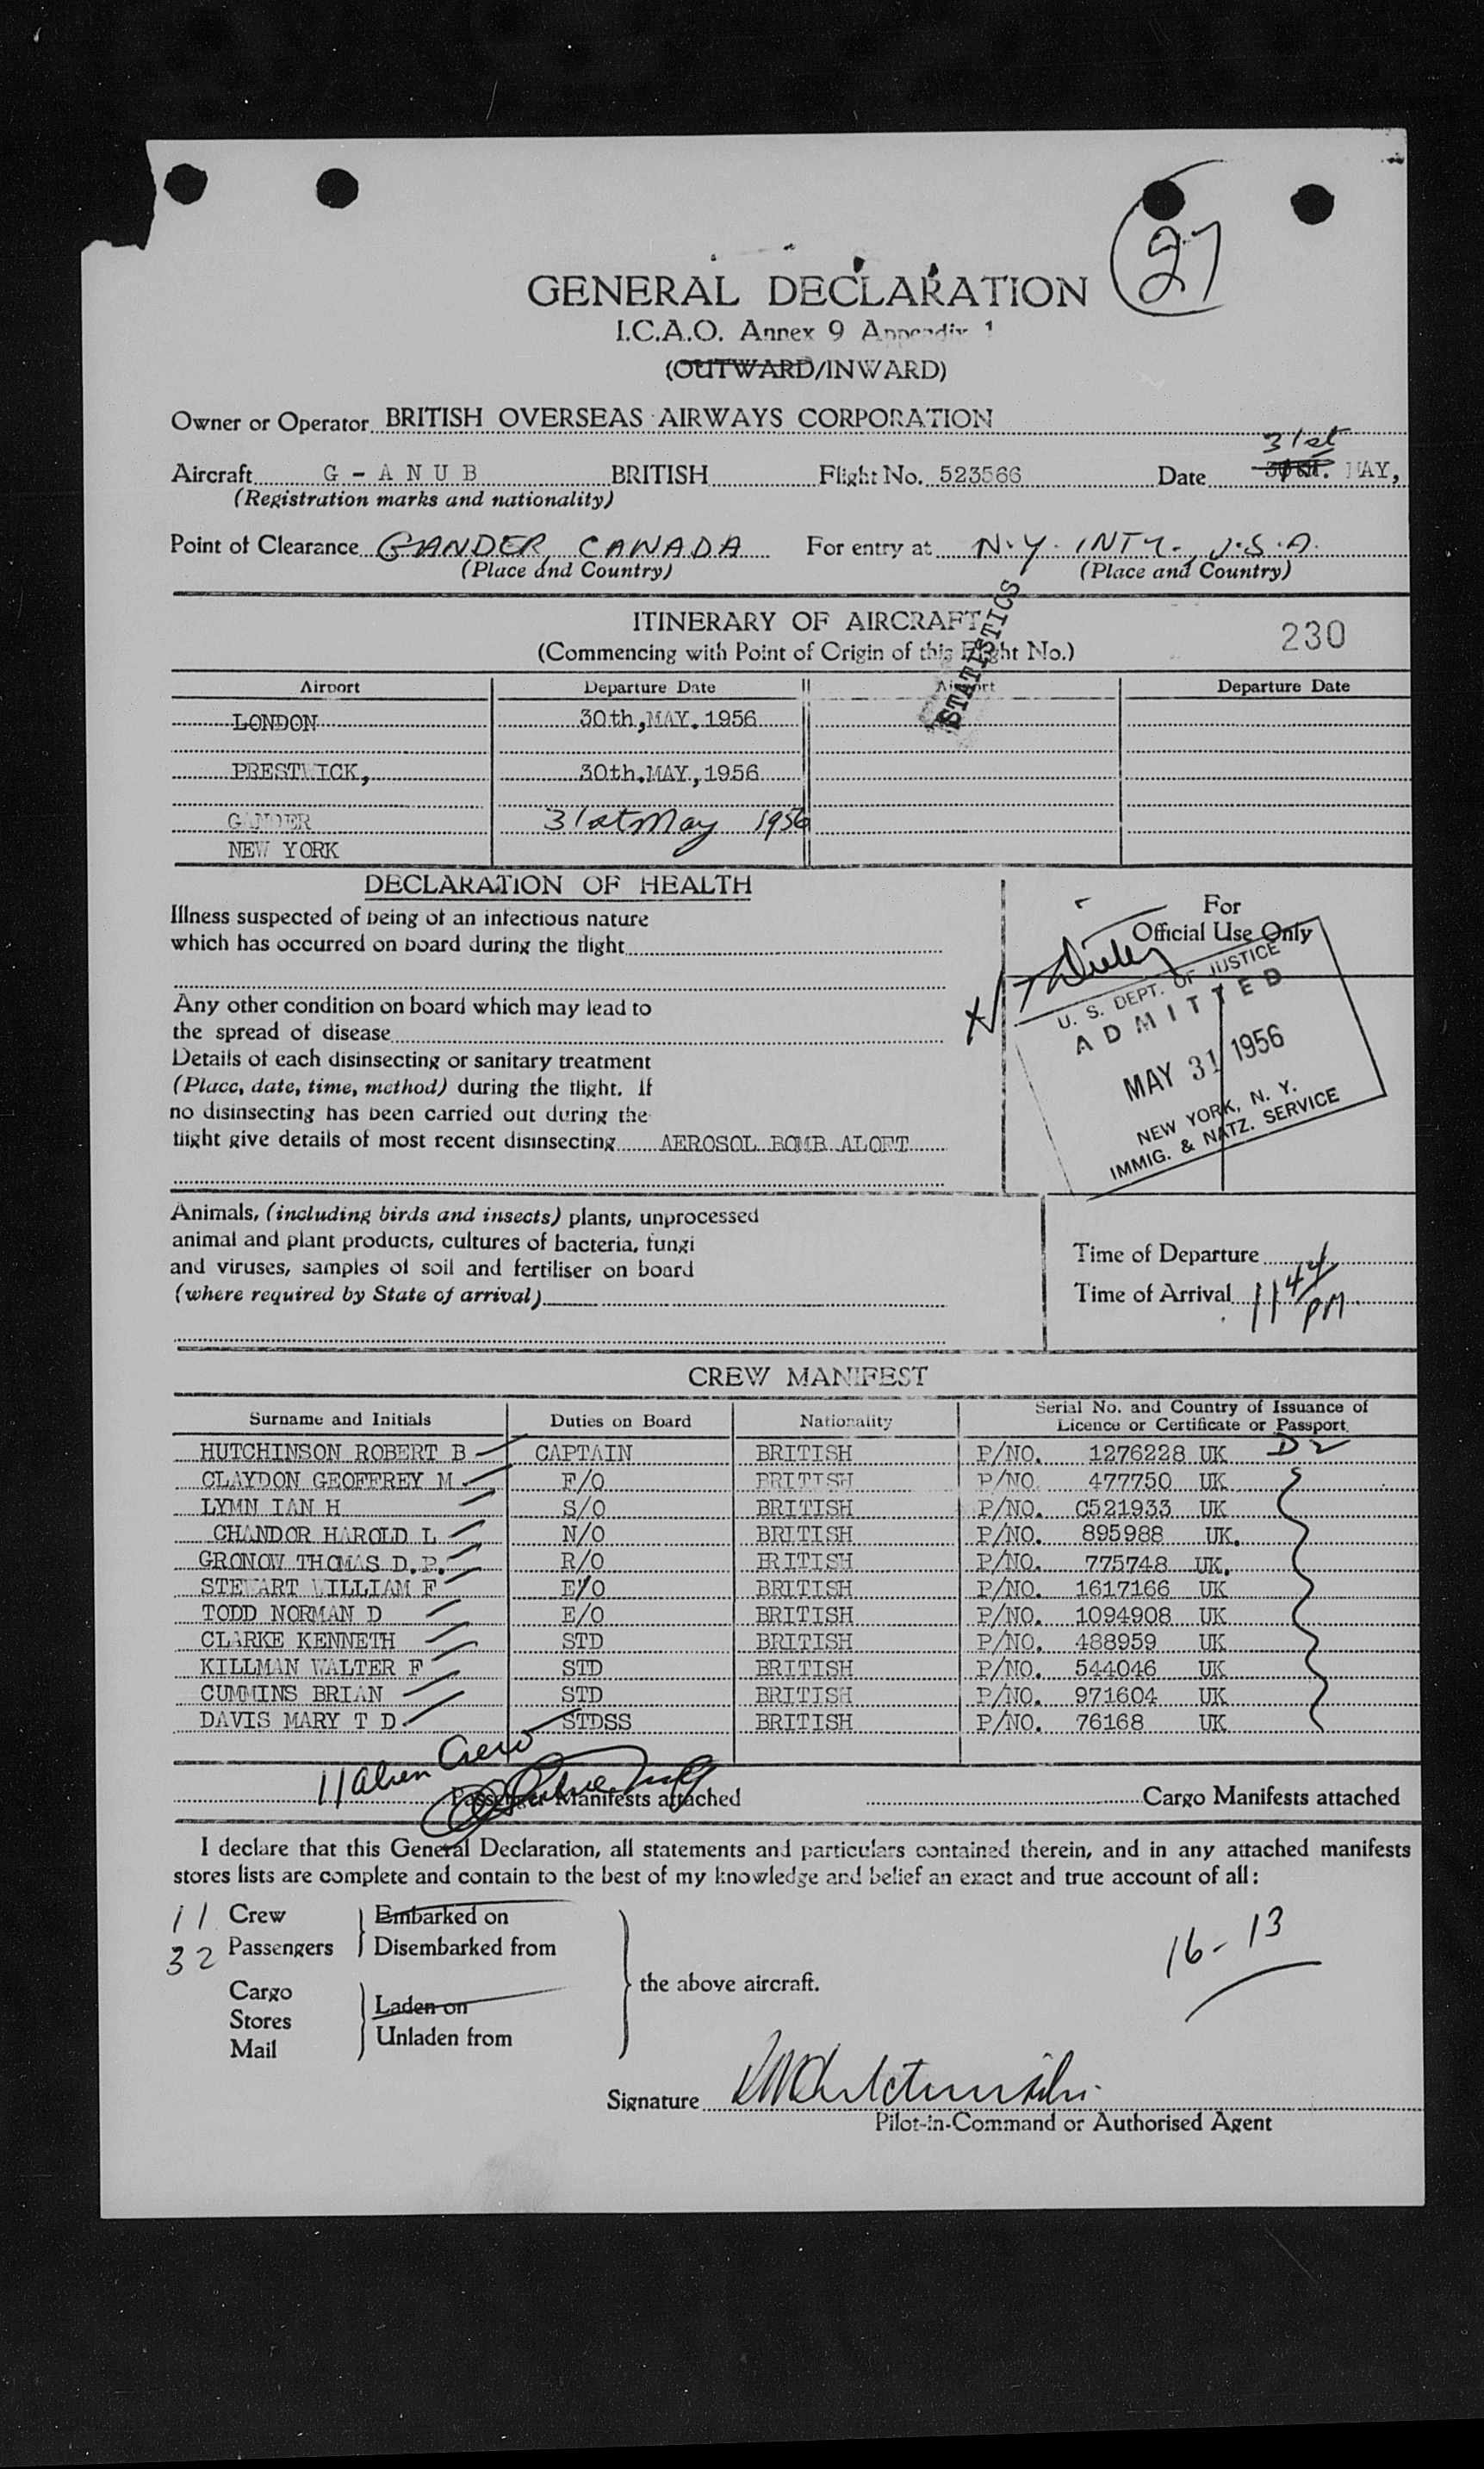 27
GENERAL DECLARATION
I.C.A.O. Annex 9 Appendix 1
(OUTWARD/INWARD)
Owner or Operator BRITISH OVERSEAS AIRWAYS CORPORATION
31st
Aircraft G - A N U B BRITISH Flight No. 523566 Date 30th. MAY,
(Registration marks and nationality)
Point of Clearance GANDER, CANADA For entry at N.Y. INT'L., U.S.A.
(Place and Country) (Place and Country)
STATISTICS
ITINERARY OF AIRCRAFT
230
(Commencing with Point of Origin of this Flight No.)
Airport Departure Date Airport Departure Date
LONDON 30th, MAY. 1956
PRESTWICK, 30th. MAY, 1956
GANDER 31st May 1956
NEW YORK
DECLARATION OF HEALTH
Illness suspected of being of an infectious nature
which has occurred on board during the flight
Any other condition on board which may lead to
the spread of disease
Details of each disinsecting or sanitary treatment
(Place, date, time, method) during the flight. If
no disinsecting has been carried out during the
flight give details of most recent disinsecting AEROSOL BOMB ALOFT
For
Official Use Only
U. S. DEPT. OF JUSTICE
ADMITTED
MAY 31 1956
NEW YORK, N. Y.
IMMIG. & NATZ. SERVICE
Animals, (including birds and insects) plants, unprocessed
animal and plant products, cultures of bacteria, fungi
and viruses, samples of soil and fertiliser on board
(where required by State of arrival)
Time of Departure
Time of Arrival 11 44 PM
CREW MANIFEST
Surname and Initials Duties on Board Nationality Serial No. and Country of Issuance of Licence or Certificate or Passport.
HUTCHINSON ROBERT B CAPTAIN BRITISH P/NO. 1276228 UK D2
CLAYDON GEOFFREY M F/O BRITISH P/NO. 477750 UK
LYMN IAN H S/O BRITISH P/NO. C521933 UK
CHANDOR HAROLD L N/O BRITISH P/NO. 895988 UK.
GRONOW THOMAS D.P. R/O BRITISH P/NO. 775748 UK.
STEWART WILLIAM F E/O BRITISH P/NO. 1617166 UK
TODD NORMAN D E/O BRITISH P/NO. 1094908 UK
CLARKE KENNETH STD BRITISH P/NO. 488959 UK
KILLMAN WALTER F STD BRITISH P/NO. 544046 UK
CUMMINS BRIAN STD BRITISH P/NO. 971604 UK
DAVIS MARY T D STDSS BRITISH P/NO. 76168 UK
11 alien Crew
Passenger Manifests attached Cargo Manifests attached
I declare that this General Declaration, all statements and particulars contained therein, and in any attached manifests
stores lists are complete and contain to the best of my knowledge and belief an exact and true account of all:
11 Crew Embarked on
32 Passengers Disembarked from
the above aircraft.
Cargo
Stores Laden on
Mail Unladen from
16-13
Signature
Pilot-in-Command or Authorised Agent